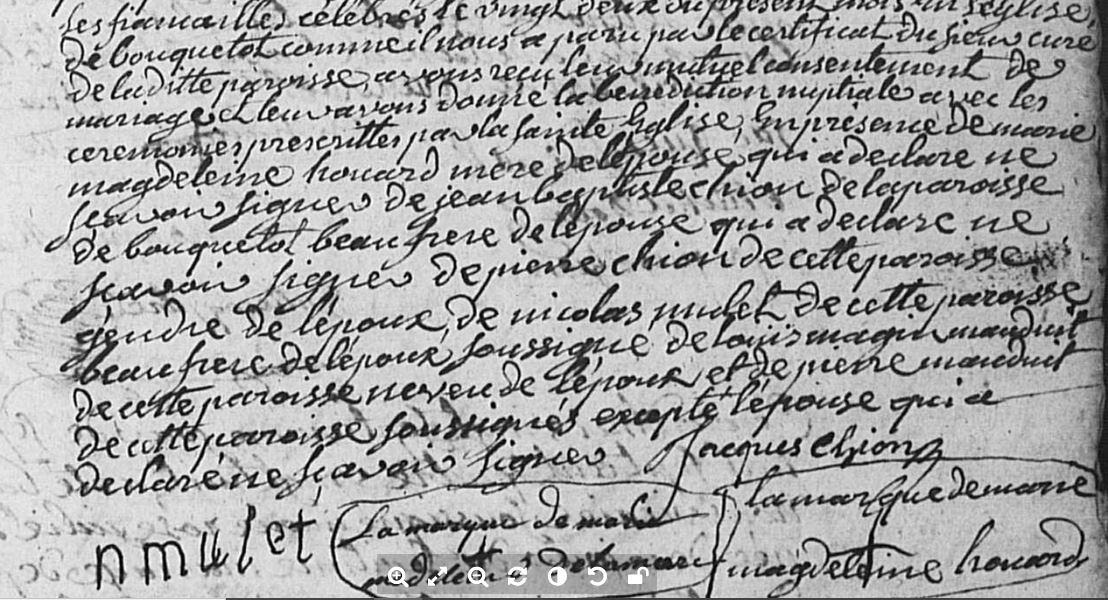 les fiancailles célébrés le vingt deux du present mois en l'eglise
de bouquetot comme il nous a paru par le certificat du sieur curé
de laditte paroisse, avons reçu leur mutuel consentement de
mariage et leur avons donné la benediction nuptiale avec les
ceremonies prescrittes par la sainte Eglise, En presence de marie
magdeleine houard mere de l'épouse, qui a declare ne
sçavoir signer de jean baptiste chion de la paroisse
de bouquetot beau frere de l'épouse qui a declare ne
sçavoir signer de pierre chion de cette paroisse
gendre de l'époux, de nicolas mulet de cette paroisse
beau frere de l'époux soussigné de louis manduit
de cette paroisse neveu de l'époux et de pierre manduit
de cette paroisse soussignés excepté l'épouse qui a
declaré ne sçavoir signer Jacques Chion
n mulet la marque de marie la marque de marie
magdeleine houard